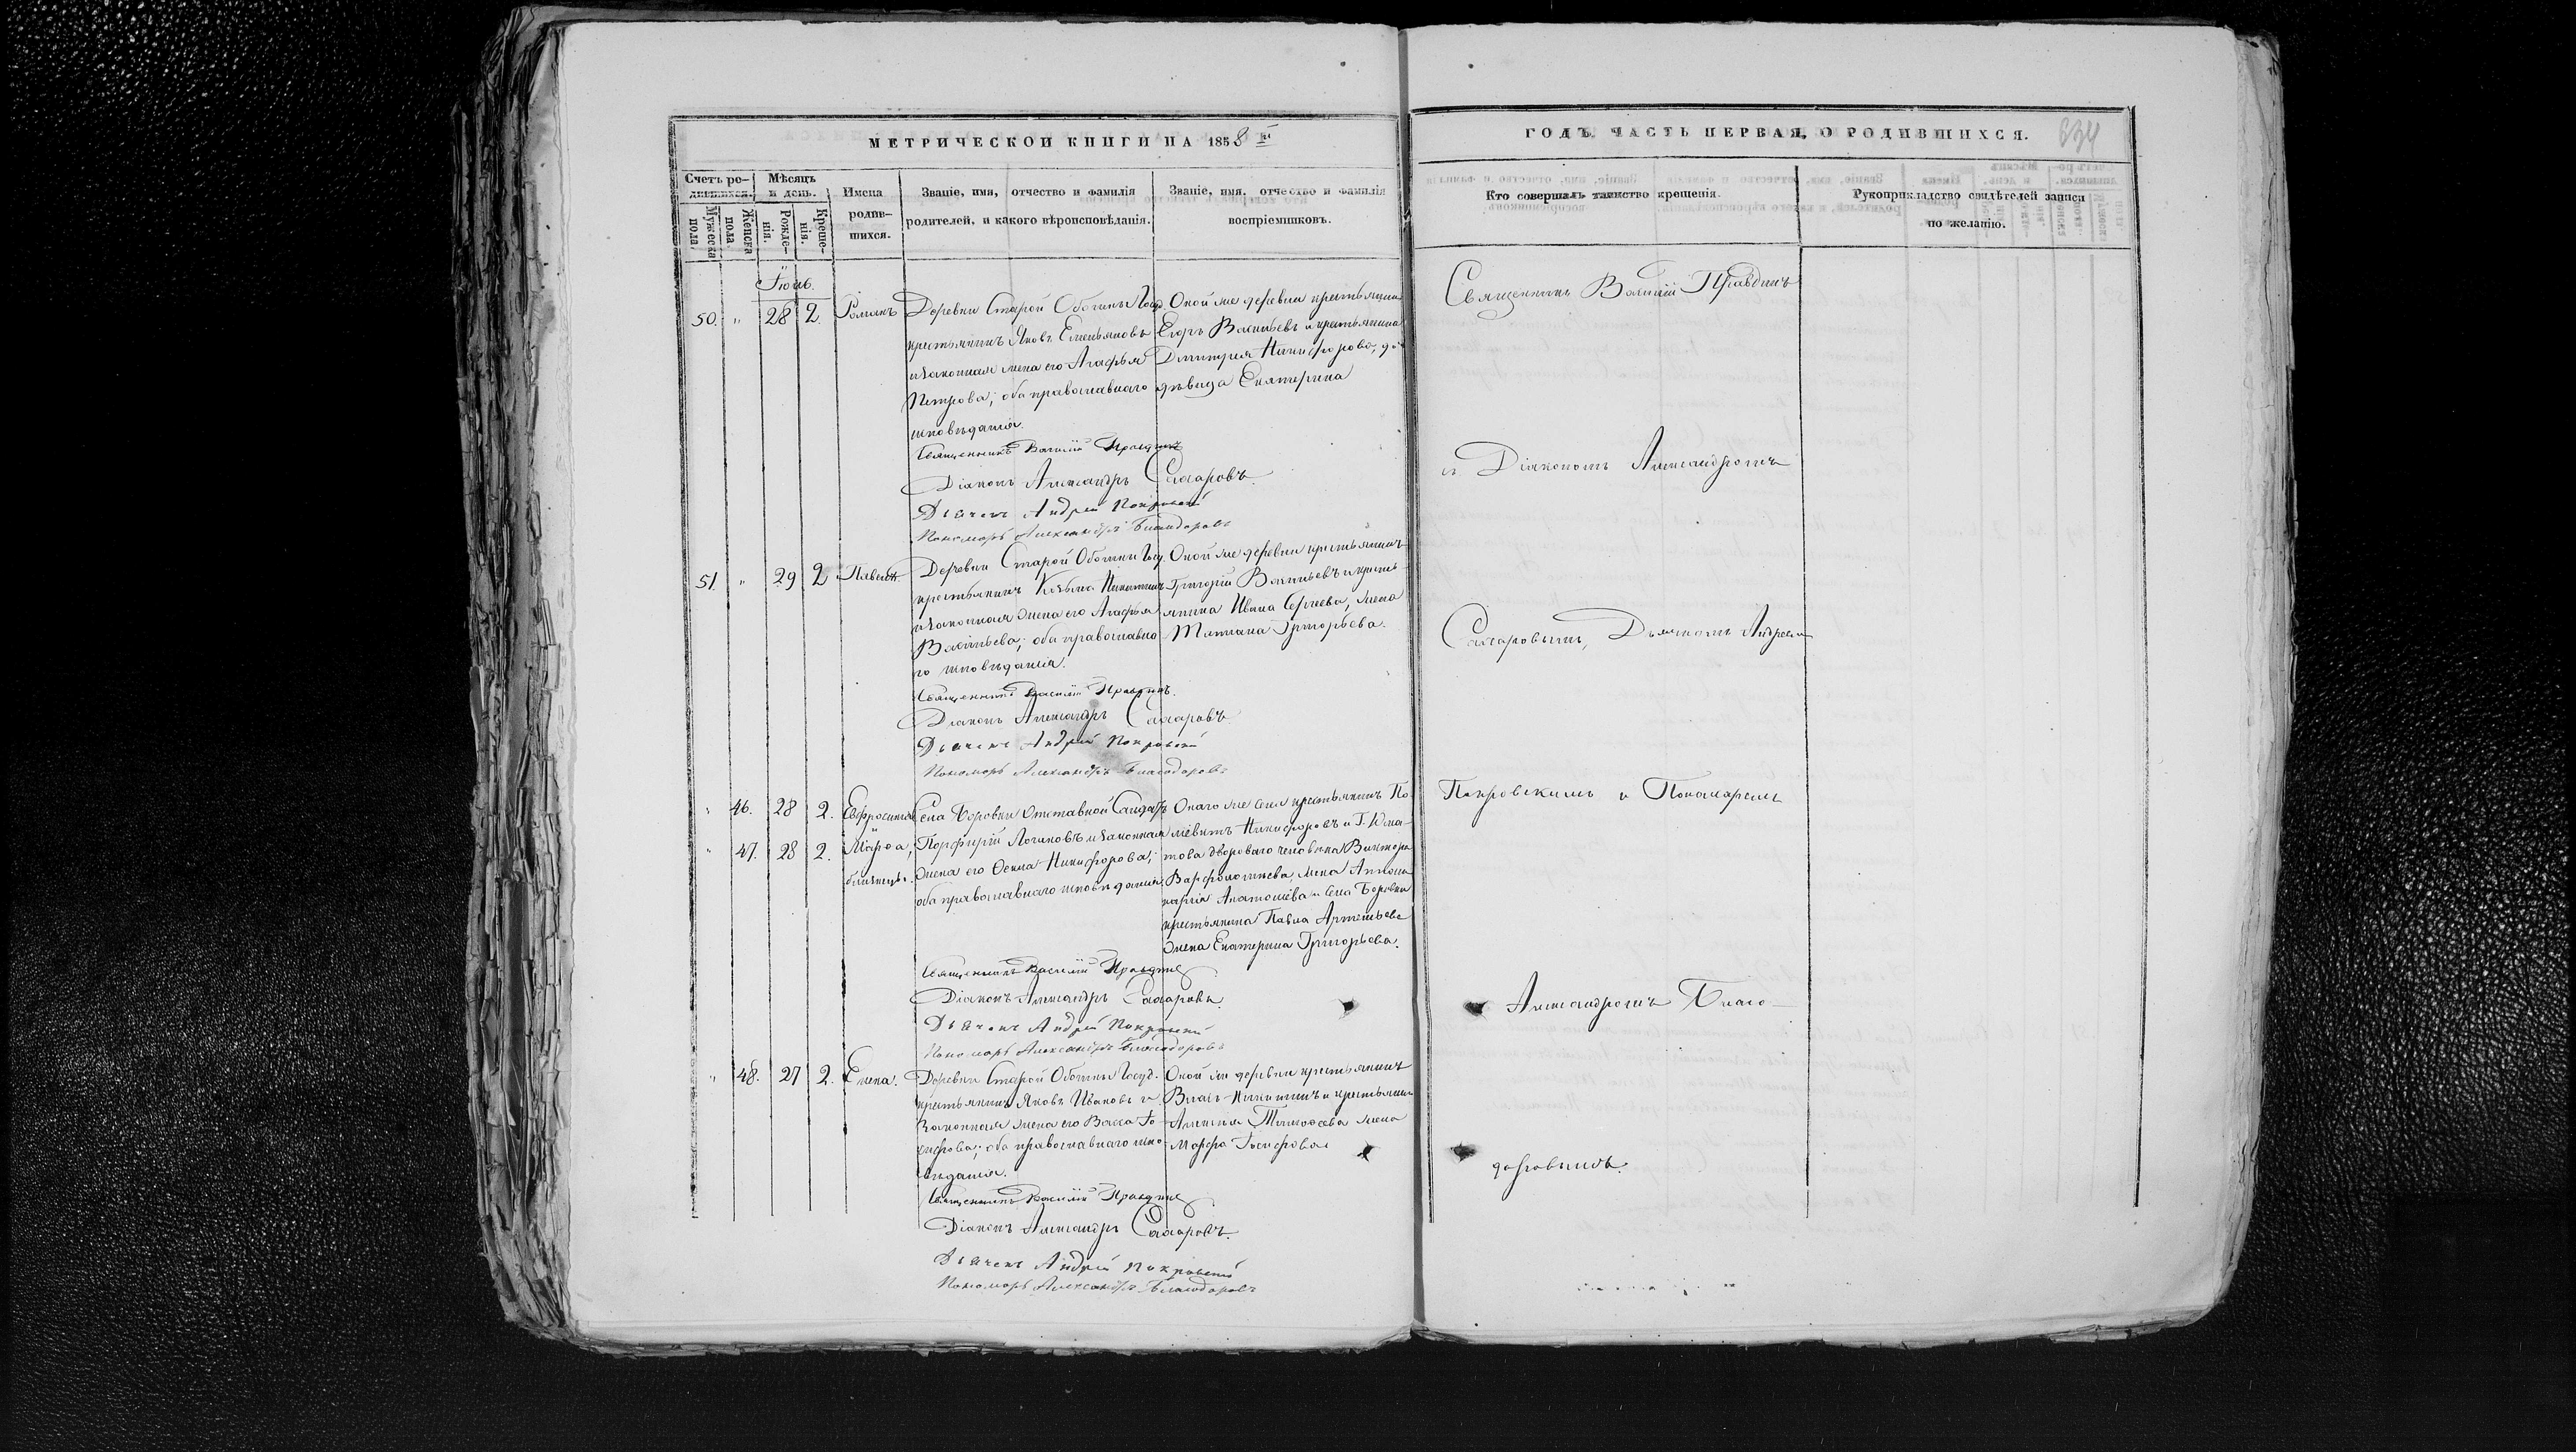 МЕТРИЧЕСКОЙ КНИГИ НА 1858 й
Счетъ ро-
дившихся.
Мѣсяцъ
и день.
Мужеска
пола.
Женска
пола.
Рожде-
нія.
Креще-
нія.
Имена
родив-
шихся.
Званіе, имя, отчество и фамилія
родителей, и какого вѣроисповѣданія.
Званіе, имя, отчество и фамилія
воспріемниковъ.
50. " 28 2. Романъ
Деревни Старой
крестьянинъ Яковъ Емельяновъ
и законная жена его Агафья
Петрова; оба православнаго
исповѣданія.
Оной же деревни крестьянинъ
Егоръ Васильевъ и крестьянина
Дмитрія Никифорова, до
дѣвица Екатерина
Священникъ Василій Правдинъ
Діаконъ Александръ Сахаровъ.
Дьячекъ Андрей Покровскій
Пономарь Александръ Благодаровъ
51. " 29 2 Павелъ
Деревни Старой
крестьянинъ Козьма Никитинъ
и законная жена его Агафья
Васильева; оба православна-
го исповѣданія.
Оной же деревни крестьянинъ
Григорій Васильевъ и кресть-
янина Ивана Сергеева, жена
Татіана Григорьева.
Священникъ Василій Правдинъ.
Діаконъ Александръ Сахаровъ
Дьячекъ Андрей Покровскій
Пономарь Александръ Благодаровъ
" 46. 28 2. Евфросинія
" 47. 28 2. Марфа,
близнецы.
Села Боровки Отставной Солдатъ
Порфирій Логиновъ и законная
жена его Никифорова;
оба православнаго исповѣданія
Онаго же села крестьянинъ По-
Никифоровъ и Г.
двороваго человѣка Виктора
Варфоломеева, жена
и села Боровки
крестьянина Павла Артемьева
жена Екатерина Григорьева.
Священникъ Василій Правдинъ
Діаконъ Александръ Сахаровъ.
Дьячекъ Андрей Покровскій
Пономарь Александръ Благодаровъ
" 48. 27 2. Елена.
Деревни Старой Госуд.
крестьянинъ Яковъ Ивановъ и
законная жена его Васса Іо-
сифова; оба православнаго испо-
вѣданія.
Оной же деревни крестьянинъ
Власъ Никитинъ и крестьянина
Алексѣя Тимофеева жена
Марфа Іосифова
Священникъ Василій Правдинъ
Діаконъ Александръ Сахаровъ.
Дьячекъ Андрей Покровскій
Пономарь Александръ Благодаровъ
ГОДЪ, ЧАСТЬ ПЕРВАЯ, О РОДИВШИХСЯ.
634
Кто совершалъ таинство крещенія.
Рукоприкладство свидѣтелей записи
по желанію.
Священникъ Василій Правдинъ
съ Діакономъ Александромъ
Сахаровымъ, Дьячкомъ Андреемъ
Покровскимъ и Пономаремъ
Александромъ Благо-
даровымъ.